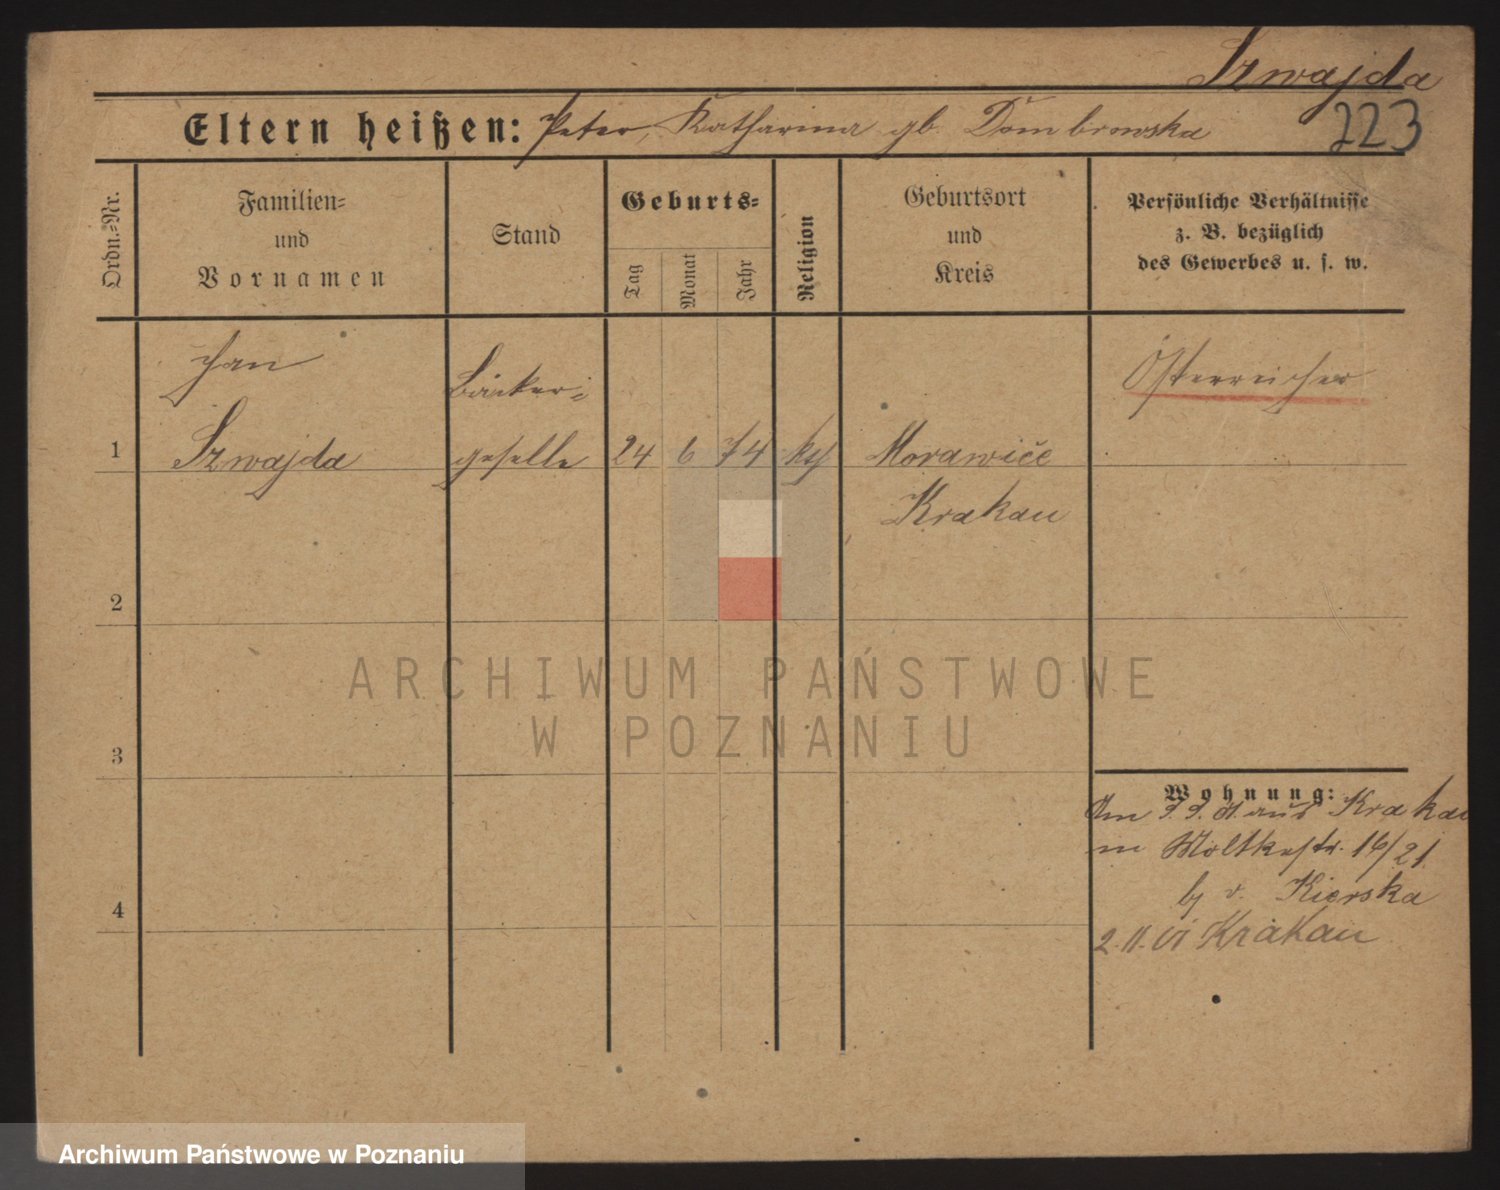 Szwajda
Eltern heißen: Peter, Katharina gb. Dombrowska
223
Ordn.-Nr.
Familien-
und
Vornamen
Stand
Geburts-
Tag
Monat
Jahr
Religion
Geburtsort
und
Kreis
Persönliche Verhältnisse
z. B. bezüglich
des Gewerbes u. s. w.
Jan
Bäcker-
Österreicher
1 Szwajda geselle 24 6 74 Morawice
Krakau
2
ARCHIWUM PAŃSTWOWE
W POZNANIU
3
Wohnung:
Am aus Krakau
in Moltkestr. 16/21
b. v. Kierska
4
2.11. Krakau
Archiwum Państwowe w Poznaniu